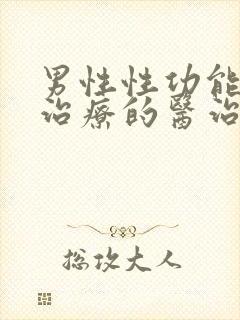 男性性功能
治療的醫治
总攻大人